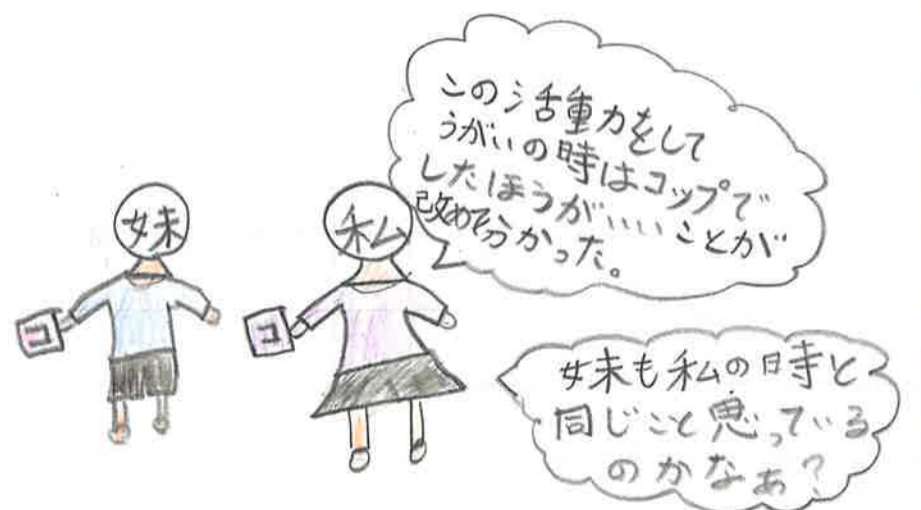 この活動をして
うがいの時はコップで
したほうがいいことが
改めて分かった。
妹
私
コ
コ
妹も私の時と
同じこと思っている
のかなぁ?